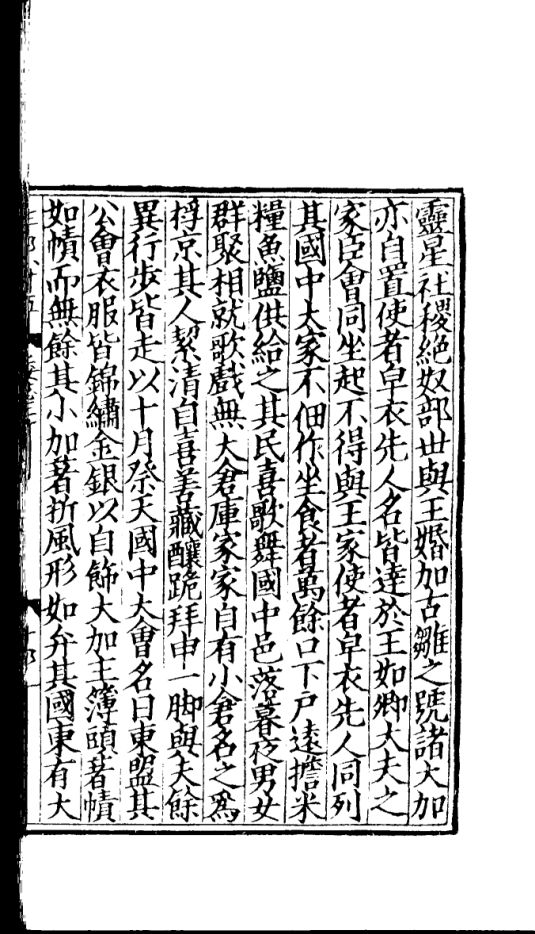 靈星社稷絶奴部世與王婚加古雛之號諸大加
亦自置使者皁衣先人名皆達於王如卿大夫之
家臣會同坐起不得與王家使者皁衣先人同列
其國中大家不佃作坐食者萬餘口下戶遠擔米
糧魚鹽供給之其民喜歌舞國中邑落暮夜男女
群聚相就歌戲無大倉庫家家自有小倉名之爲
桴京其人絜清自喜善藏釀跪拜申一脚與夫餘
異行步皆走以十月祭天國中大會名曰東盟其
公會衣服皆錦繡金銀以自飾大加主簿頭著幘
如幘而無餘其小加著折風形如弁其國東有大